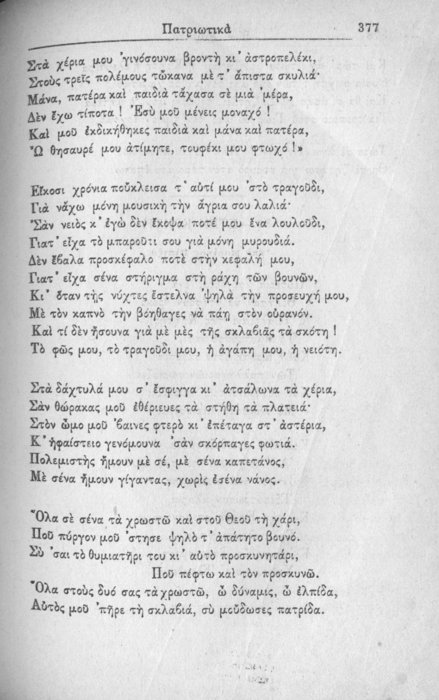 Πατριωτικὰ 377
Στὰ χέρια μου ᾿γινόσουνα βροντὴ κι᾿ ἀστροπελέκι,
Στοὺς τρεῖς πολέμους τὤκανα μὲ τ᾿ ἄπιστα σκυλιά·
Μάνα, πατέρα καὶ παιδιὰ τἄχασα σὲ μιὰ ᾿μέρα,
Δὲν ἔχω τίποτα ! Ἐσὺ μοῦ μένεις μοναχό !
Καὶ μοῦ ἐκδικήθηκες παιδιὰ καὶ μάνα καὶ πατέρα,
Ὦ θησαυρέ μου ἀτίμητε, τουφέκι μου φτωχό !»
Εἴκοσι χρόνια ποὔκλεισα τ᾿ αὐτί μου ᾿στὸ τραγοῦδι,
Γιὰ νἄχω μόνη μουσικὴ τὴν ἄγρια σου λαλιά·
Σὰν νειὸς κ᾿ ἐγὼ δὲν ἔκοψα ποτέ μου ἕνα λουλοῦδι,
Γιατ᾿ εἶχα τὸ μπαροῦτι σου γιὰ μόνη μυρουδιά.
Δὲν ἔβαλα προσκέφαλο ποτὲ στὴν κεφαλή μου,
Γιατ᾿ εἶχα σένα στήριγμα στὴ ράχη τῶν βουνῶν,
Κι᾿ ὅταν τῆς νύχτες ἔστελνα ᾿ψηλὰ τὴν προσευχή μου,
Μὲ τὸν καπνὸ τὴν βόηθαγες νὰ πάῃ στὸν οὐρανόν.
Καὶ τί δὲν ἤσουνα γιὰ μὲ μὲς τῆς σκλαβιᾶς τὰ σκότη !
Τὸ φῶς μου, τὸ τραγοῦδι μου, ἡ ἀγάπη μου, ἡ νειότη.
Στὰ δάχτυλά μου σ᾿ ἔσφιγγα κι᾿ ἀτσάλωνα τὰ χέρια,
Σὰν θώρακας μοῦ ἐθέριευες τὰ στήθη τὰ πλατειά·
Στὸν ὦμο μοῦ ᾿βαινες φτερὸ κι᾿ ἐπέταγα στ᾿ ἀστέρια,
Κ᾿ ἡφαίστειο γενόμουνα ᾿σὰν σκόρπαγες φωτιά.
Πολεμιστὴς ἤμουν μὲ σέ, μὲ σένα καπετάνος,
Μὲ σένα ἤμουν γίγαντας, χωρὶς ἐσένα νάνος.
Ὅλα σὲ σένα τὰ χρωστῶ καὶ στοῦ Θεοῦ τὴ χάρι,
Ποῦ πύργον μοῦ ᾿στησε ψηλὸ τ᾿ ἀπάτητο βουνό.
Σὺ ᾿σαι τὸ θυμιατῆρι του κι᾿ αὐτὸ προσκυνητάρι,
Ποῦ πέφτω καὶ τὸν προσκυνῶ.
Ὅλα στοὺς δυό σας τὰ χρωστῶ, ὦ δύναμις, ὦ ἐλπίδα,
Αὐτὸς μοῦ ᾿πῆρε τὴ σκλαβιά, σὺ μοὔδωσες πατρίδα.